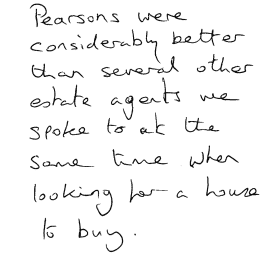 Pearsons were
considerably better
than several other
estate agents we
spoke to at the
same time when
looking for a house
to buy.